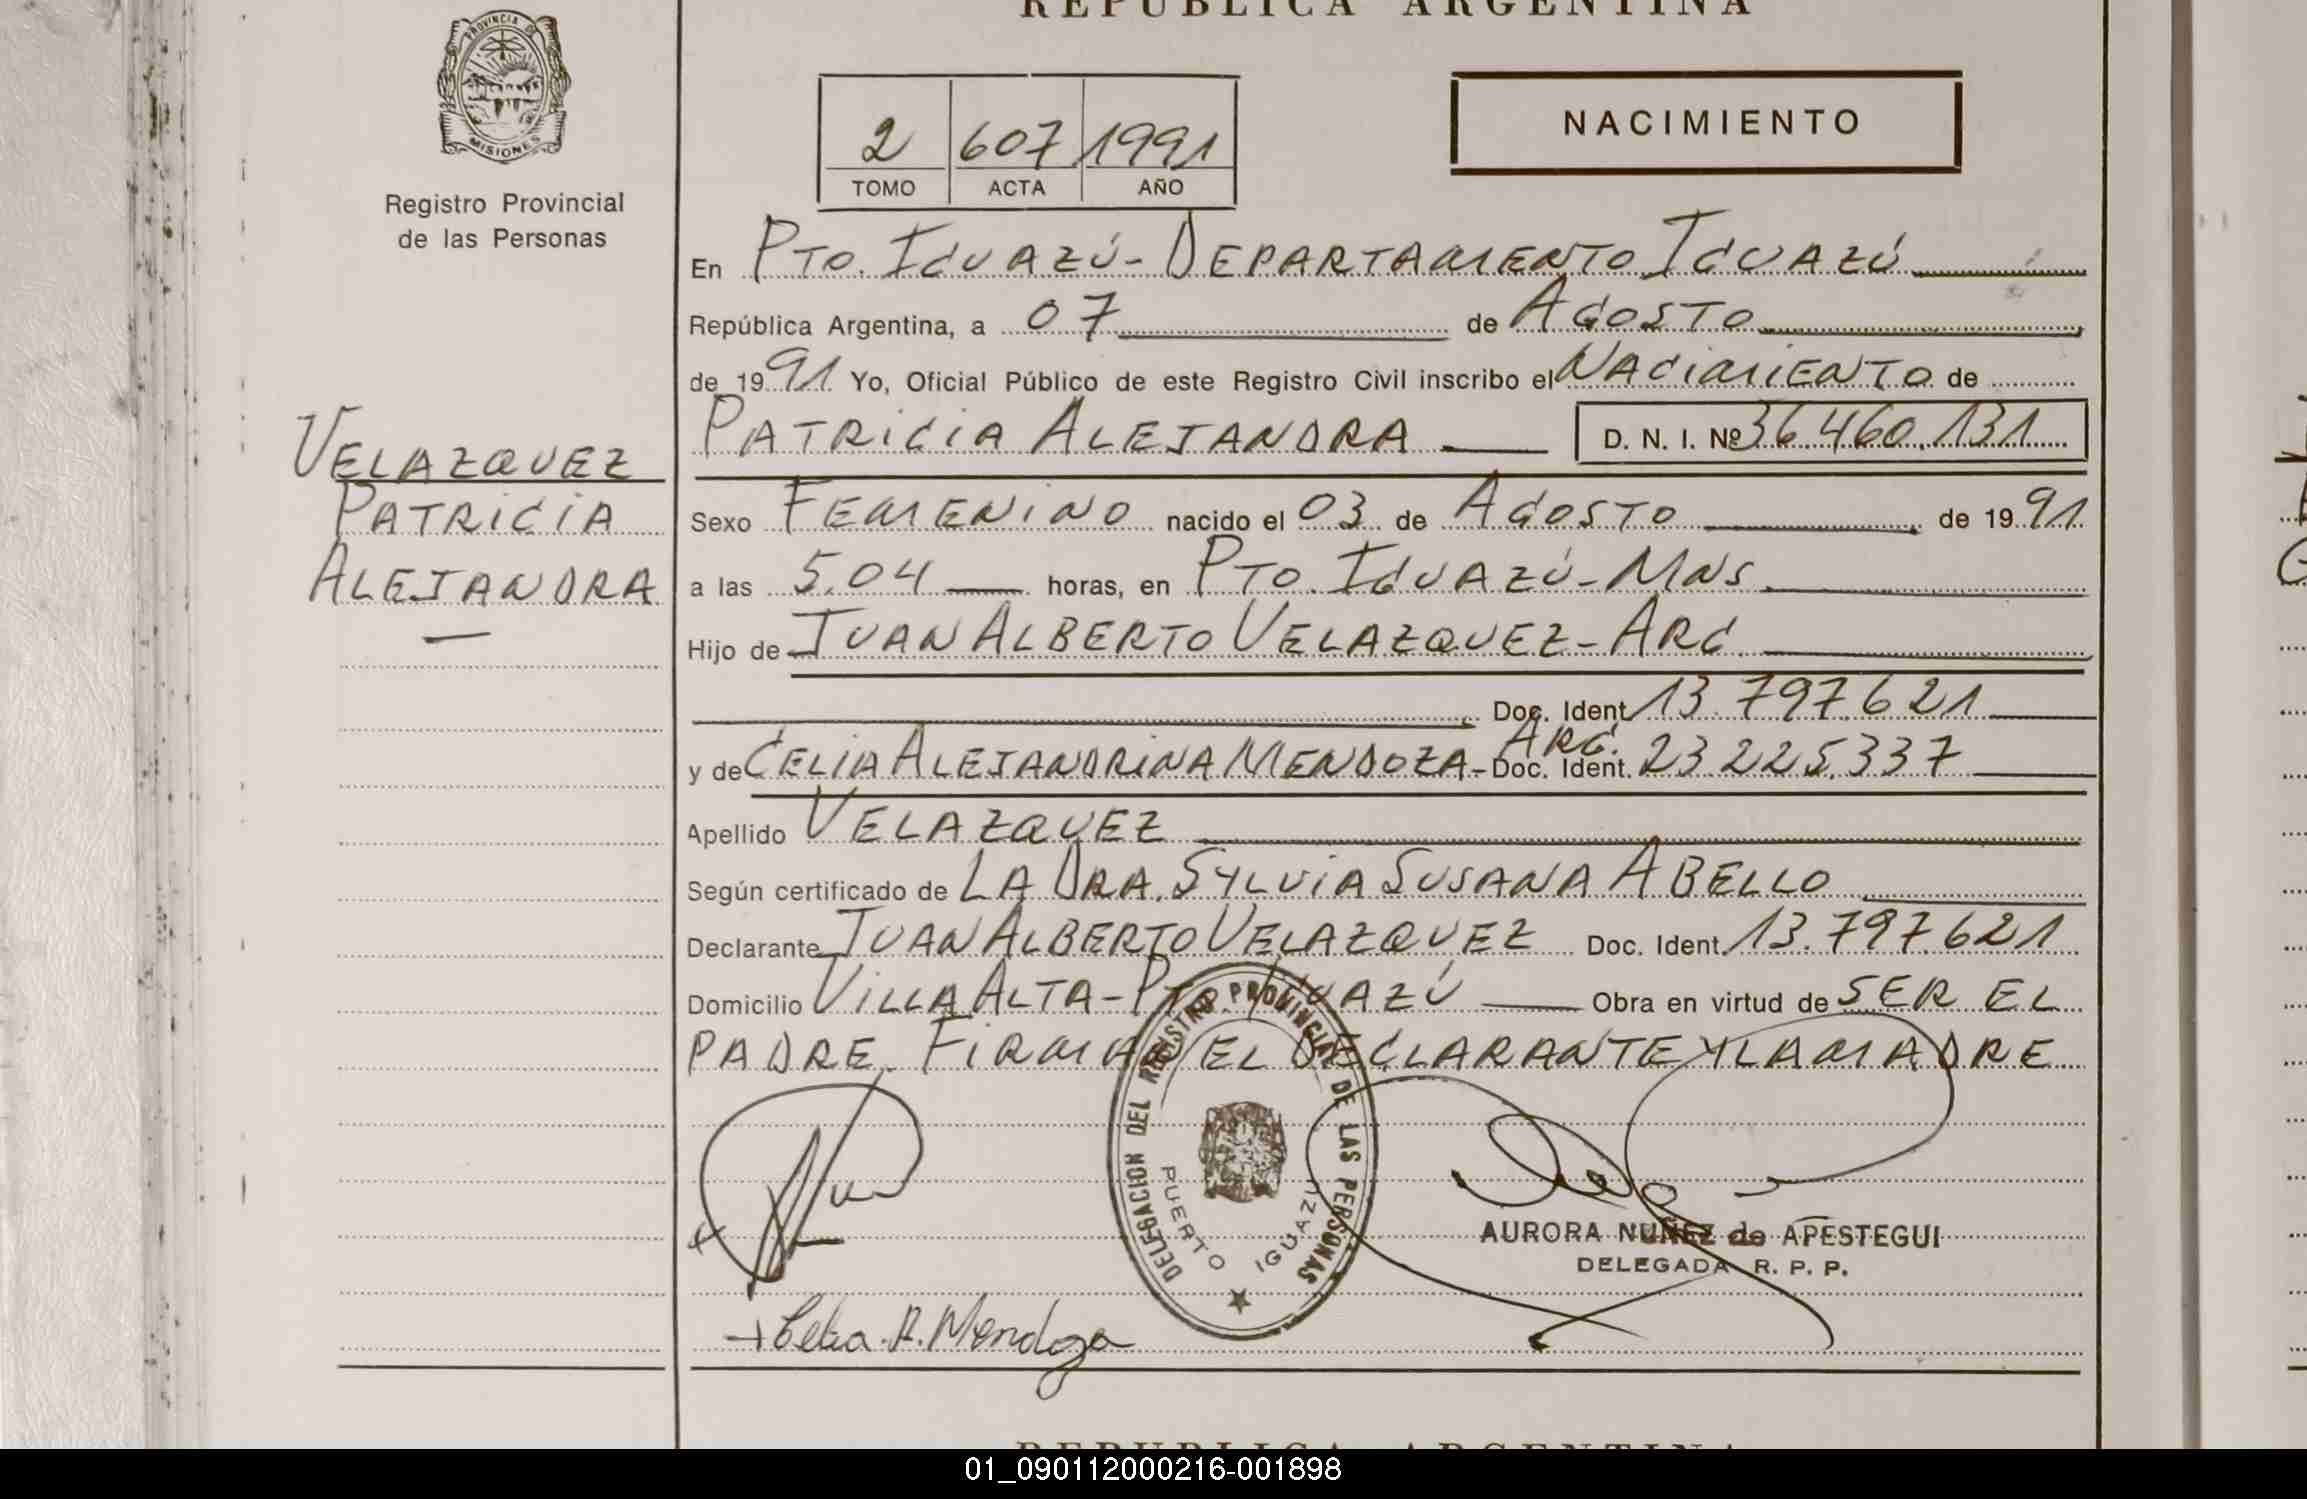 REPUBLICA ARGENTINA
PROVINCIA DE
MISIONES
Registro Provincial
de las Personas
2 607 1991
TOMO ACTA AÑO
NACIMIENTO
En PTO. IGUAZÚ - DEPARTAMENTO IGUAZÚ
República Argentina, a 07 de AGOSTO
de 1991 Yo, Oficial Público de este Registro Civil inscribo el NACIMIENTO de
PATRICIA ALEJANDRA D. N. I. Nº 36.460.131
VELAZQUEZ
PATRICIA
ALEJANDRA
Sexo FEMENINO nacido el 03 de AGOSTO de 1991
a las 5.04 horas, en PTO. IGUAZÚ - MNS
Hijo de JUAN ALBERTO VELAZQUEZ - ARG
Doc. Ident. 13.797.621
ARG.
y de CELIA ALEJANDRINA MENDOZA - Doc. Ident. 23.225.337
Apellido VELAZQUEZ
Según certificado de LA DRA. SYLVIA SUSANA ABELLO
Declarante JUAN ALBERTO VELAZQUEZ Doc. Ident. 13.797.621
Domicilio VILLA ALTA - PTO. IGUAZÚ Obra en virtud de SER EL
PADRE. FIRMAN EL DECLARANTE Y LA MADRE
DELEGACION DEL REGISTRO PROVINCIAL DE LAS PERSONAS
PUERTO IGUAZU
AURORA NUÑEZ de APESTEGUI
DELEGADA R. P. P.
Celia A. Mendoza
REPUBLICA ARGENTINA
01_090112000216-001898